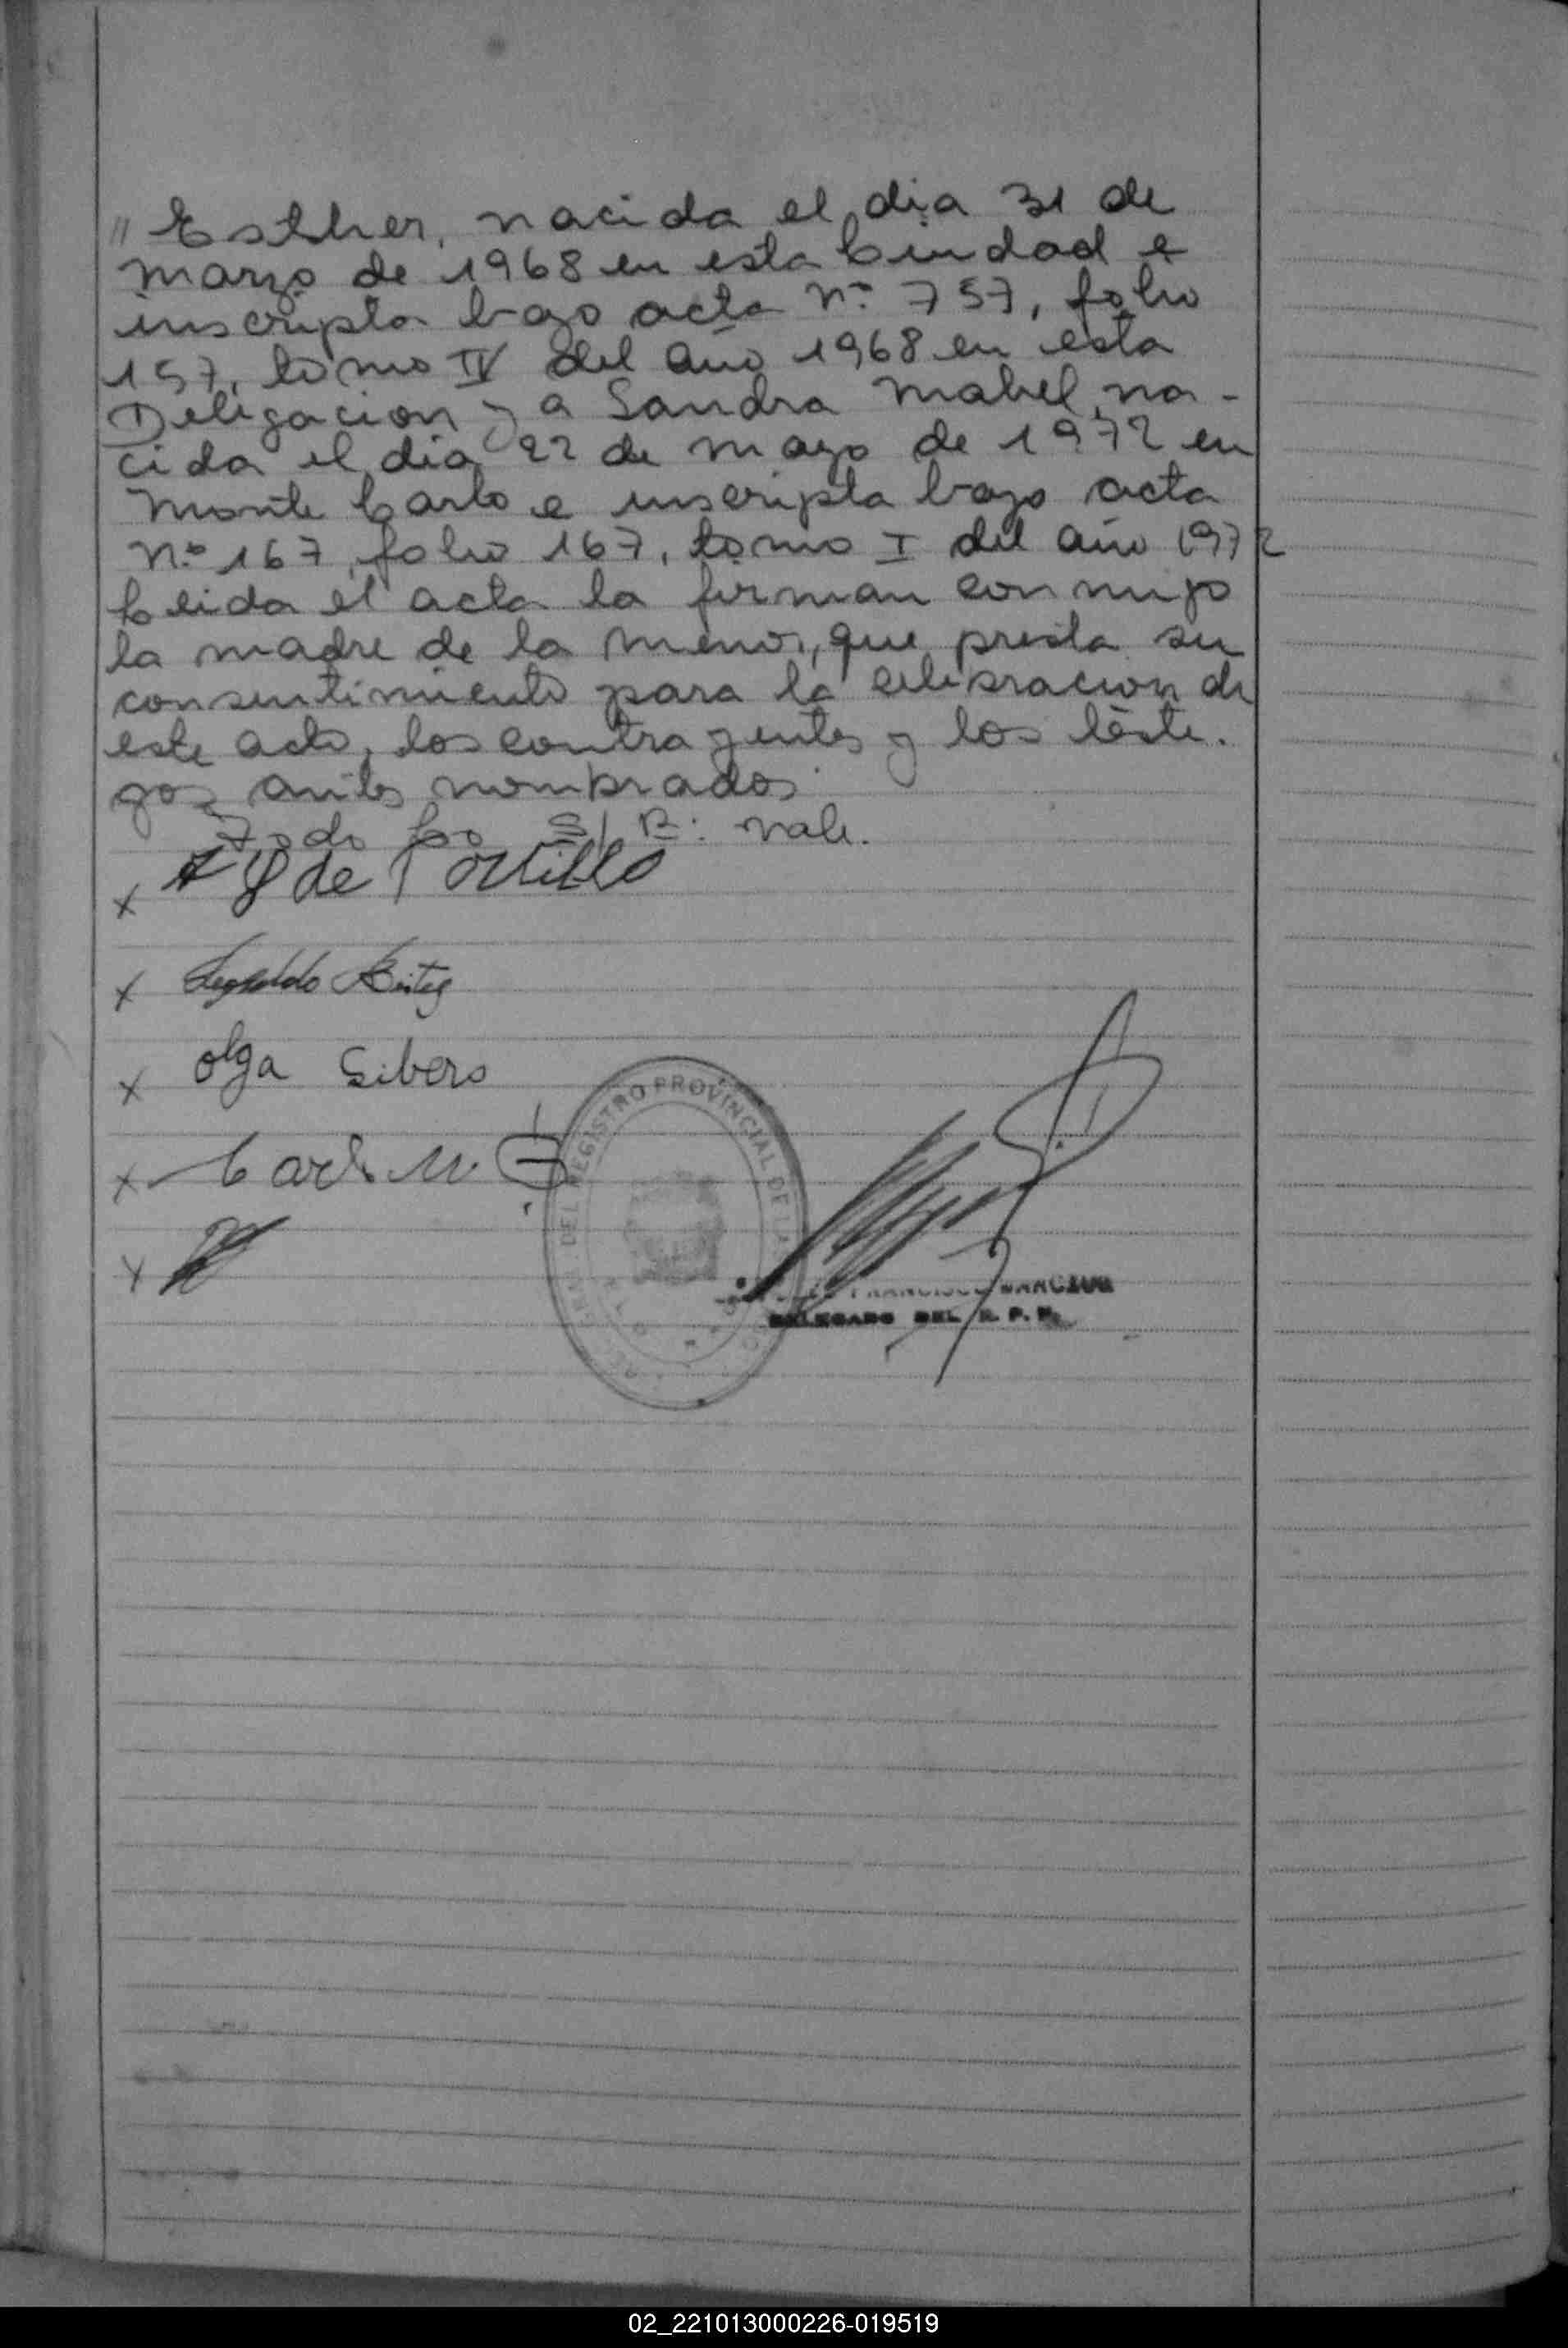 " Esther, nacida el dia 31 de
marzo de 1968 en esta Ciudad e
inscripta bajo acta Nº 757, folio
157, tomo IV del año 1968 en esta
Delegacion y a Sandra Mabel, na-
cida el dia 22 de mayo de 1972 en
Monte Carlo e inscripta bajo acta
Nº 167, folio 167, tomo I del año 1972
Leida el acta la firman conmigo
la madre de la menor, que presta su
consentimiento para la celebracion de
este acto, los contrayentes y los testi-
gos antes nombrados.
Todo S/ R: vale.
x de Portillo
x Leopoldo Benitez
x olga Sibero
x Carlos M.
x
REGISTRO PROVINCIAL DE LAS
FRANCISCO
DELEGADO DEL R. P. P.
02_221013000226-019519